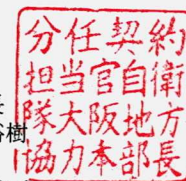 分任契約
担当官自衛
隊大阪地方
協力本部長
樹